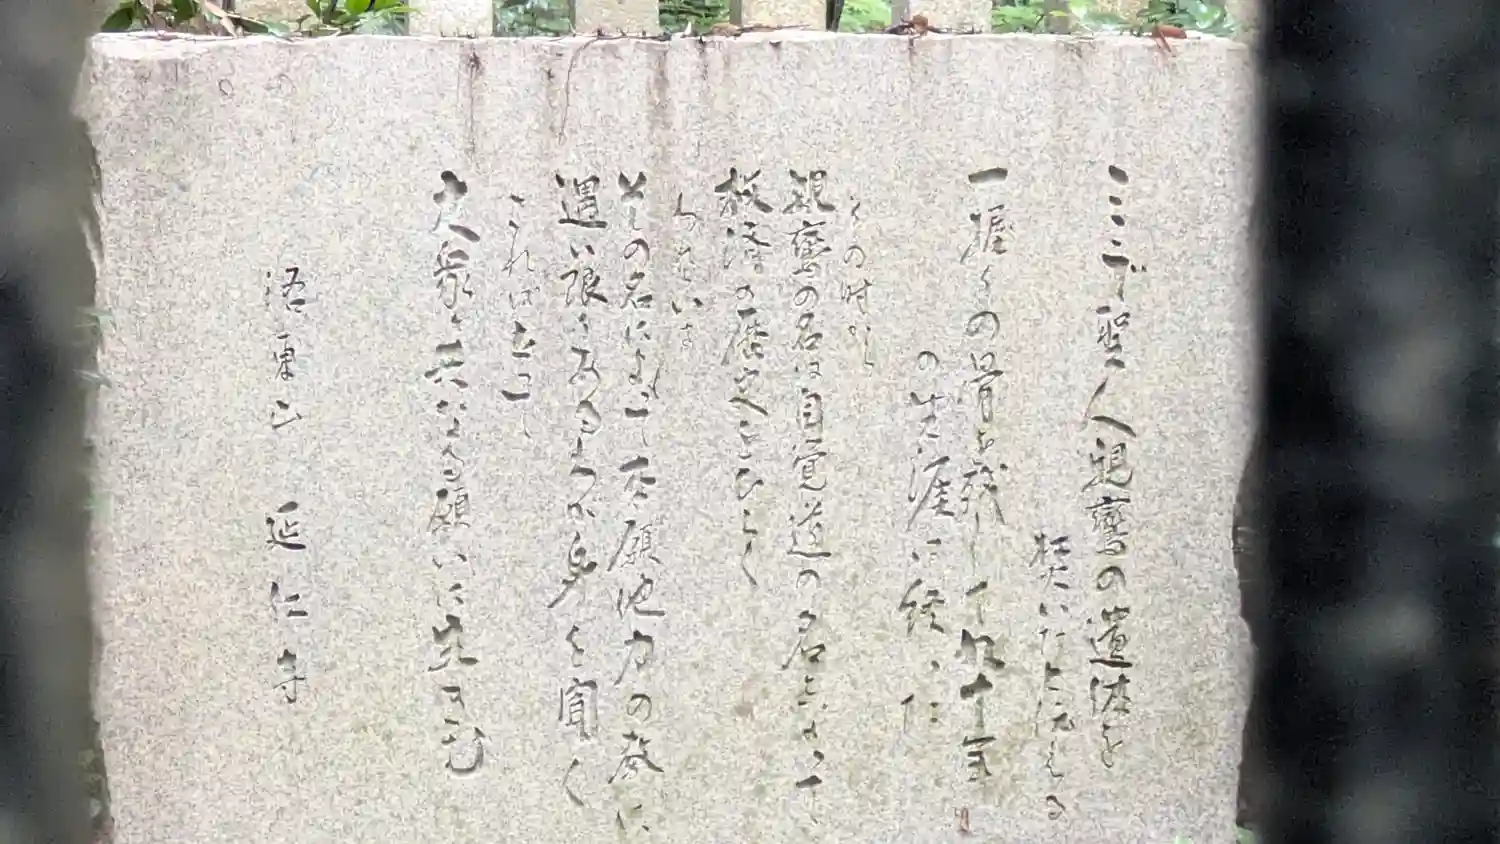 ここで聖人親鸞の遺体を
焚いたと伝える
一握りの骨を残して九十年
の生涯は終った
その時から
親鸞の名は自覚道の名となって
救済の歴史をひらく
わたしはいま
その名によって本願他力の教に
遇い難くあるわが身を聞く
されば立って
大衆と共なる願いに生きむ
洛東山 延仁寺